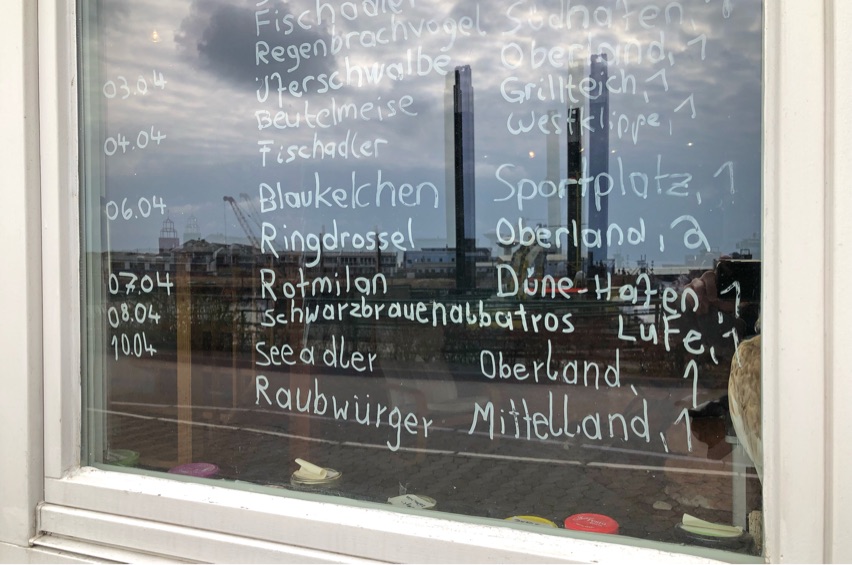 Fischadler Südhafen, 1
Regenbrachvogel Oberland, 1
03.04 Uferschwalbe Grillteich, 1
Beutelmeise Westklippe, 1
04.04 Fischadler
06.04 Blaukelchen Sportplatz, 1
Ringdrossel Oberland, 2
07.04 Rotmilan Düne-Hafen, 1
08.04 Schwarzbrauenalbatros LuFe, 1
10.04 Seeadler Oberland, 1
Raubwürger Mittelland, 1